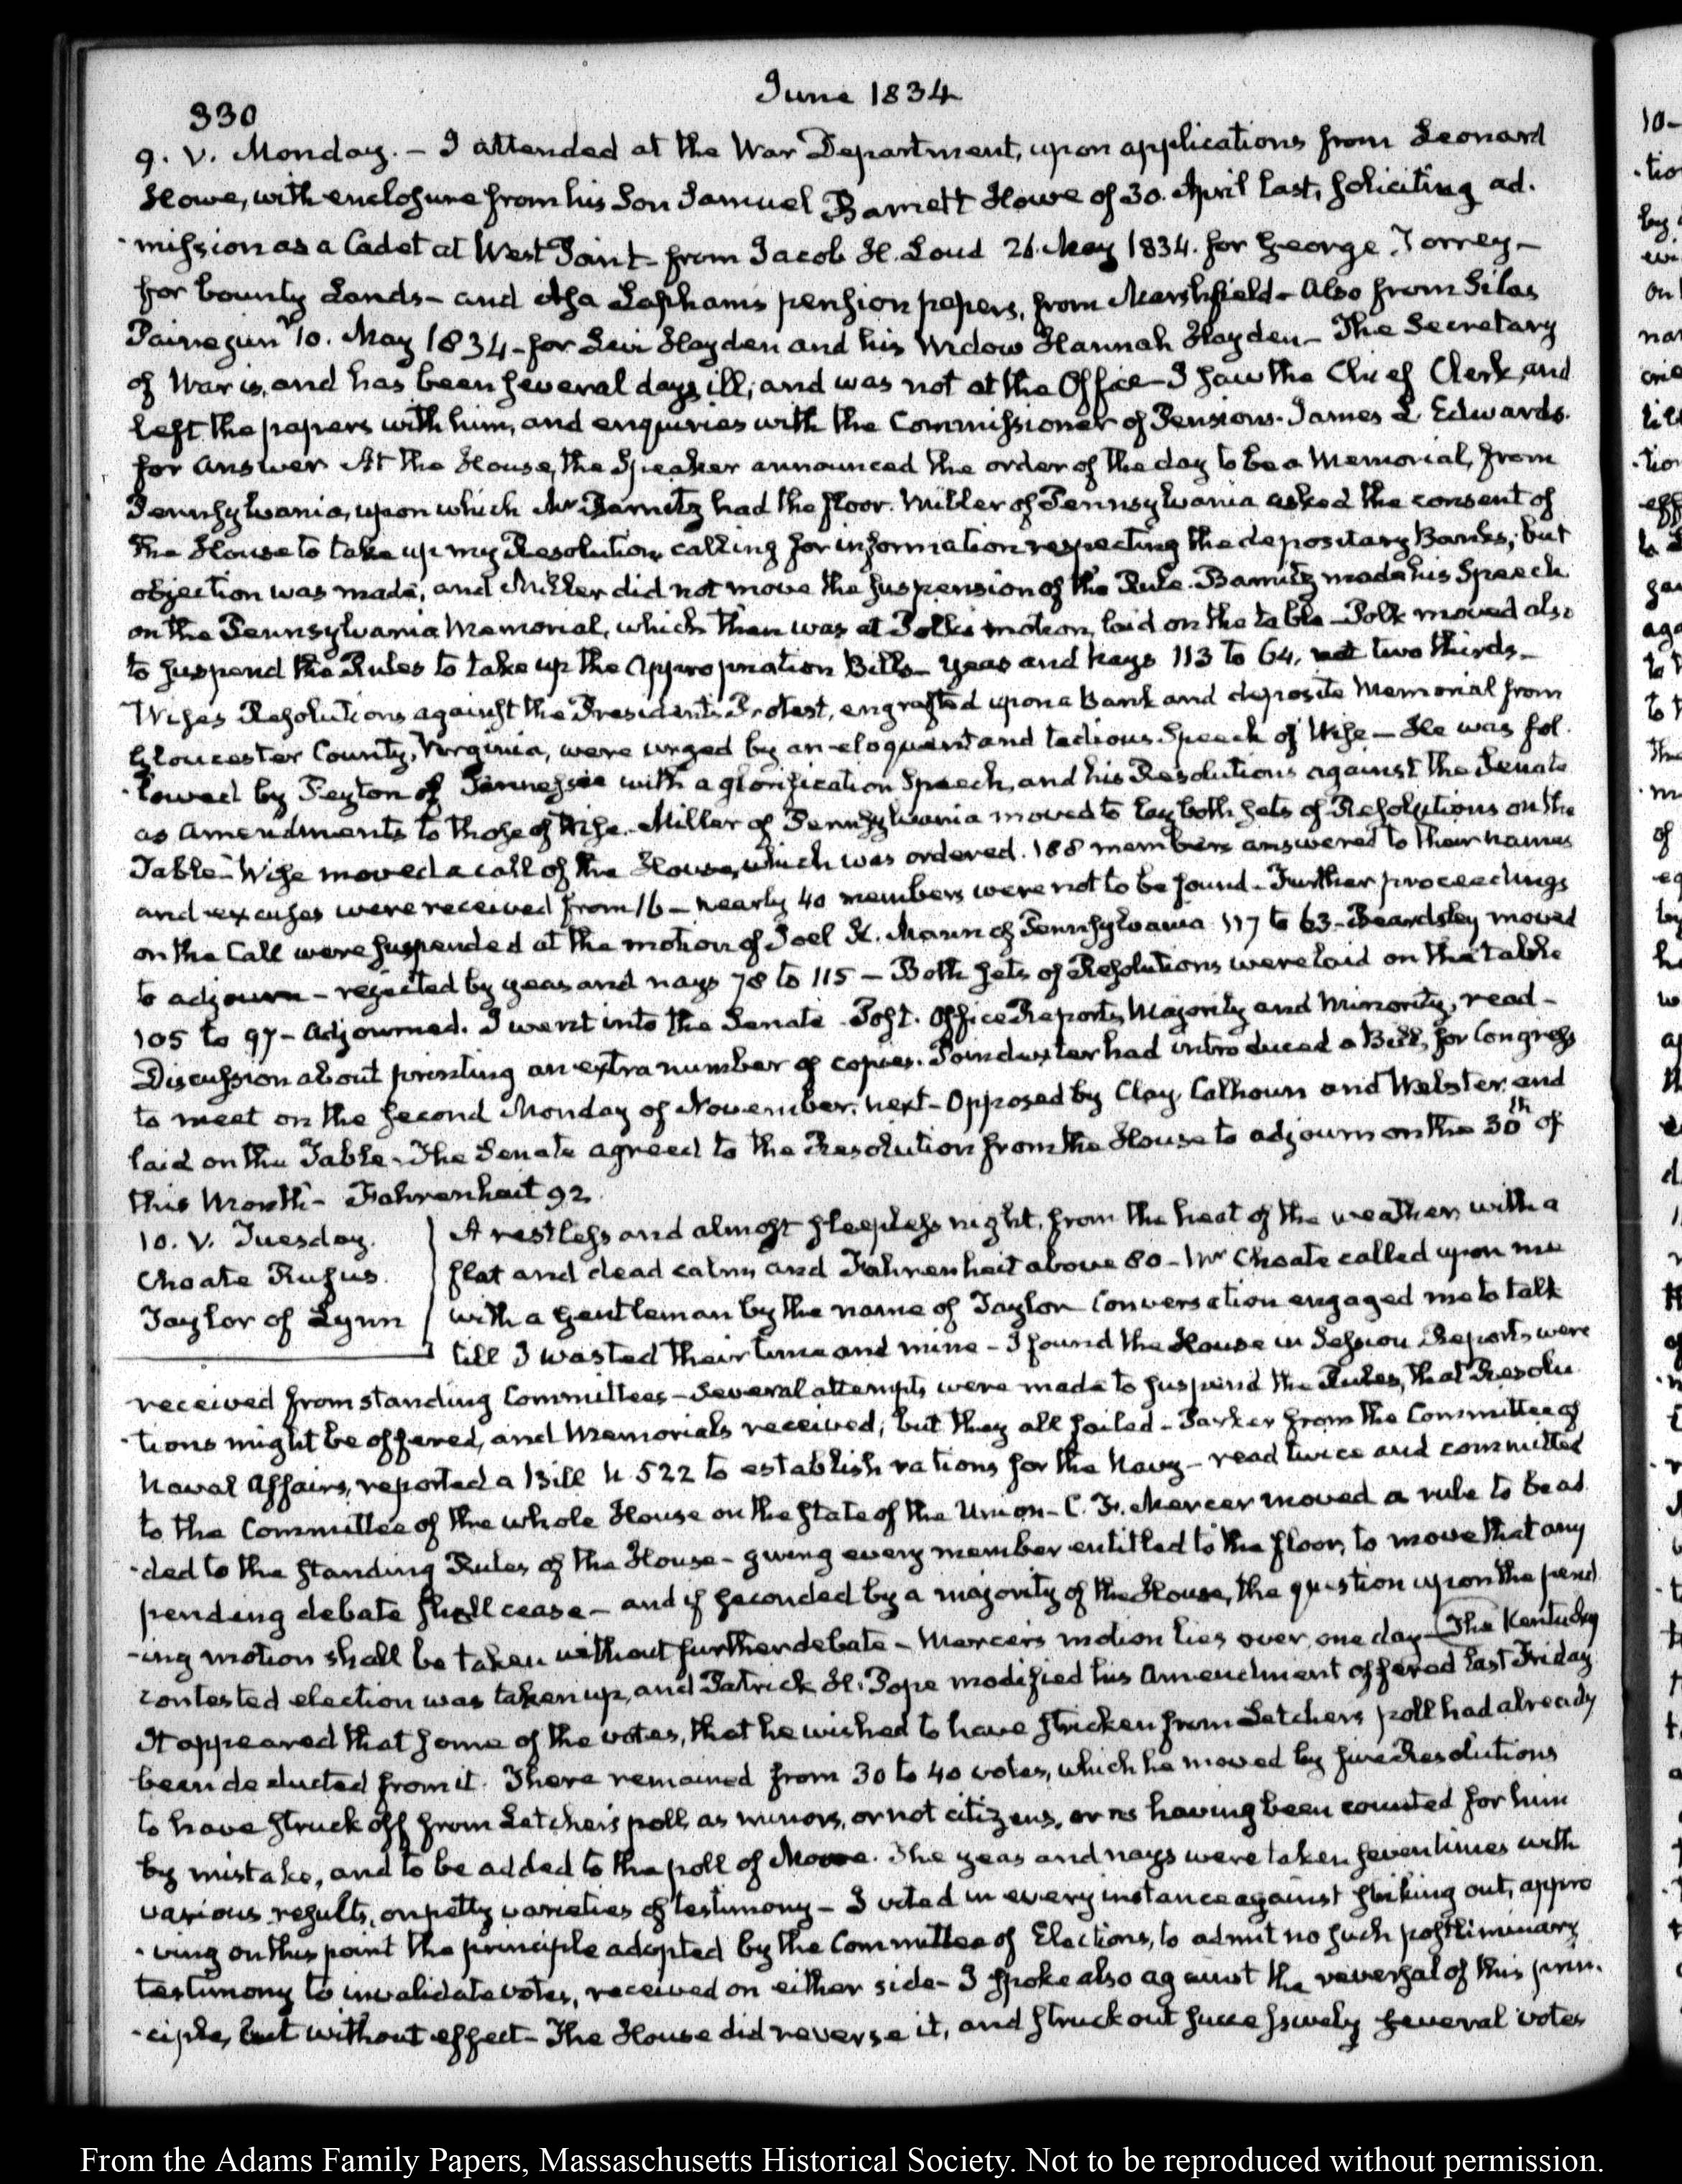 June 1834
330
9. V. Monday. – I attended at the War Department, upon applications from Leonard
Howe, with enclosure from his Son Samuel Barrett Howe of 30. April last, soliciting ad.
-mission as a Cadet at West Point – from Jacob H. Loud 26. May 1834. for George Torrey –
for bounty Lands – and Asa Lapham's pension papers, from Marshfield – Also from Silas
Paine junr 10. May 1834 – for Levi Hayden and his Widow Hannah Hayden – The Secretary
of War is, and has been several days ill; and was not at the Office – I saw the Chief Clerk, and
left the papers with him, and enquiries with the Commissioner of Pensions. James L Edwards.
for answer At the House, the Speaker announced the order of the day to be a Memorial, from
Pennsylvania, upon which Mr Barnitz had the floor. Miller of Pennsylvania asked the consent of
the House to take up my Resolution, calling for information respecting the depositary Banks; but
objection was made, and Miller did not move the suspension of the Rule. Barnitz made his Speech
on the Pennsylvania Memorial, which then was at Polk's motion, laid on the table – Polk moved also
to suspend the Rules to take up the Appropriation Bills – yeas and nays 113 to 64, not two thirds –
Wise's Resolutions against the President's Protest, engrafted upon a Bank and deposite Memorial from
Gloucester County, Virginia, were urged by an eloquent and tedious Speech of Wise – He was fol.
-lowed by Peyton of Tennessee with a glorification Speech, and his Resolutions against the Senate
as amendments to those of Wise. Miller of Pennsylvania moved to lay both sets of Resolutions on the
Table – Wise moved a call of the House, which was ordered. 188 members answered to their names
and excuses were received from 16 – nearly 40 members were not to be found – Further proceedings
on the Call were suspended at the motion of Joel K. Mann of Pennsylvania 117 to 63 – Beardsley moved
to adjourn – rejected by yeas and nays 78 to 115 – Both sets of Resolutions were laid on the table
105 to 97 – Adjourned. I went into the Senate – Post. Office Reports, Majority and Minority, read –
Discussion about printing an extra number of copies. Poindexter had introduced a Bill, for Congress
to meet on the second Monday of November, next – Opposed by Clay, Calhoun and Webster, and
laid on the Table – The Senate agreed to the Resolution from the House to adjourn on the 30th of
this Month – Fahrenheit 92.
10. V. Tuesday.
Choate Rufus
Taylor of Lynn
A restless and almost sleepless night, from the heat of the weather, with a
flat and dead calm and Fahrenheit above 80 – Mr Choate called upon me
with a gentleman by the name of Taylor Conversation engaged me to talk
till I wasted their time and mine – I found the House in Session Reports were
received from standing Committees – Several attempts were made to suspend the Rules, that Resolu
-tions might be offered, and Memorials received; but they all failed – Parker from the Committee of
Naval Affairs, reported a Bill N. 522 to establish rations for the Navy – read twice and committed
to the Committee of the whole House on the State of the Union – C. F. Mercer moved a rule to be ad
-ded to the standing Rules of the House – giving every member entitled to the floor, to move that any
pending debate shall cease – and if seconded by a majority of the House, the question upon the pend
-ing motion shall be taken without further debate – Mercer's motion lies over one day – The Kentucky
contested election was taken up, and Patrick H. Pope modified his Amendment offered last Friday
It appeared that some of the votes, that he wished to have stricken from Letcher's poll had already
been deducted from it. There remained from 30 to 40 votes, which he moved by five Resolutions
to have struck off from Letcher's poll, as minors, or not citizens, or as having been counted for him
by mistake, and to be added to the poll of Moore. The yeas and nays were taken seven times with
various results, on petty varieties of testimony – I voted in every instance against striking out, appro
-ving on this point the principle adopted by the Committee of Elections, to admit no such postliminary
testimony to invalidate votes, received on either side – I spoke also against the reversal of this prin.
-ciple, but without effect – The House did reverse it, and struck out successively several votes
From the Adams Family Papers, Massachusetts Historical Society. Not to be reproduced without permission.